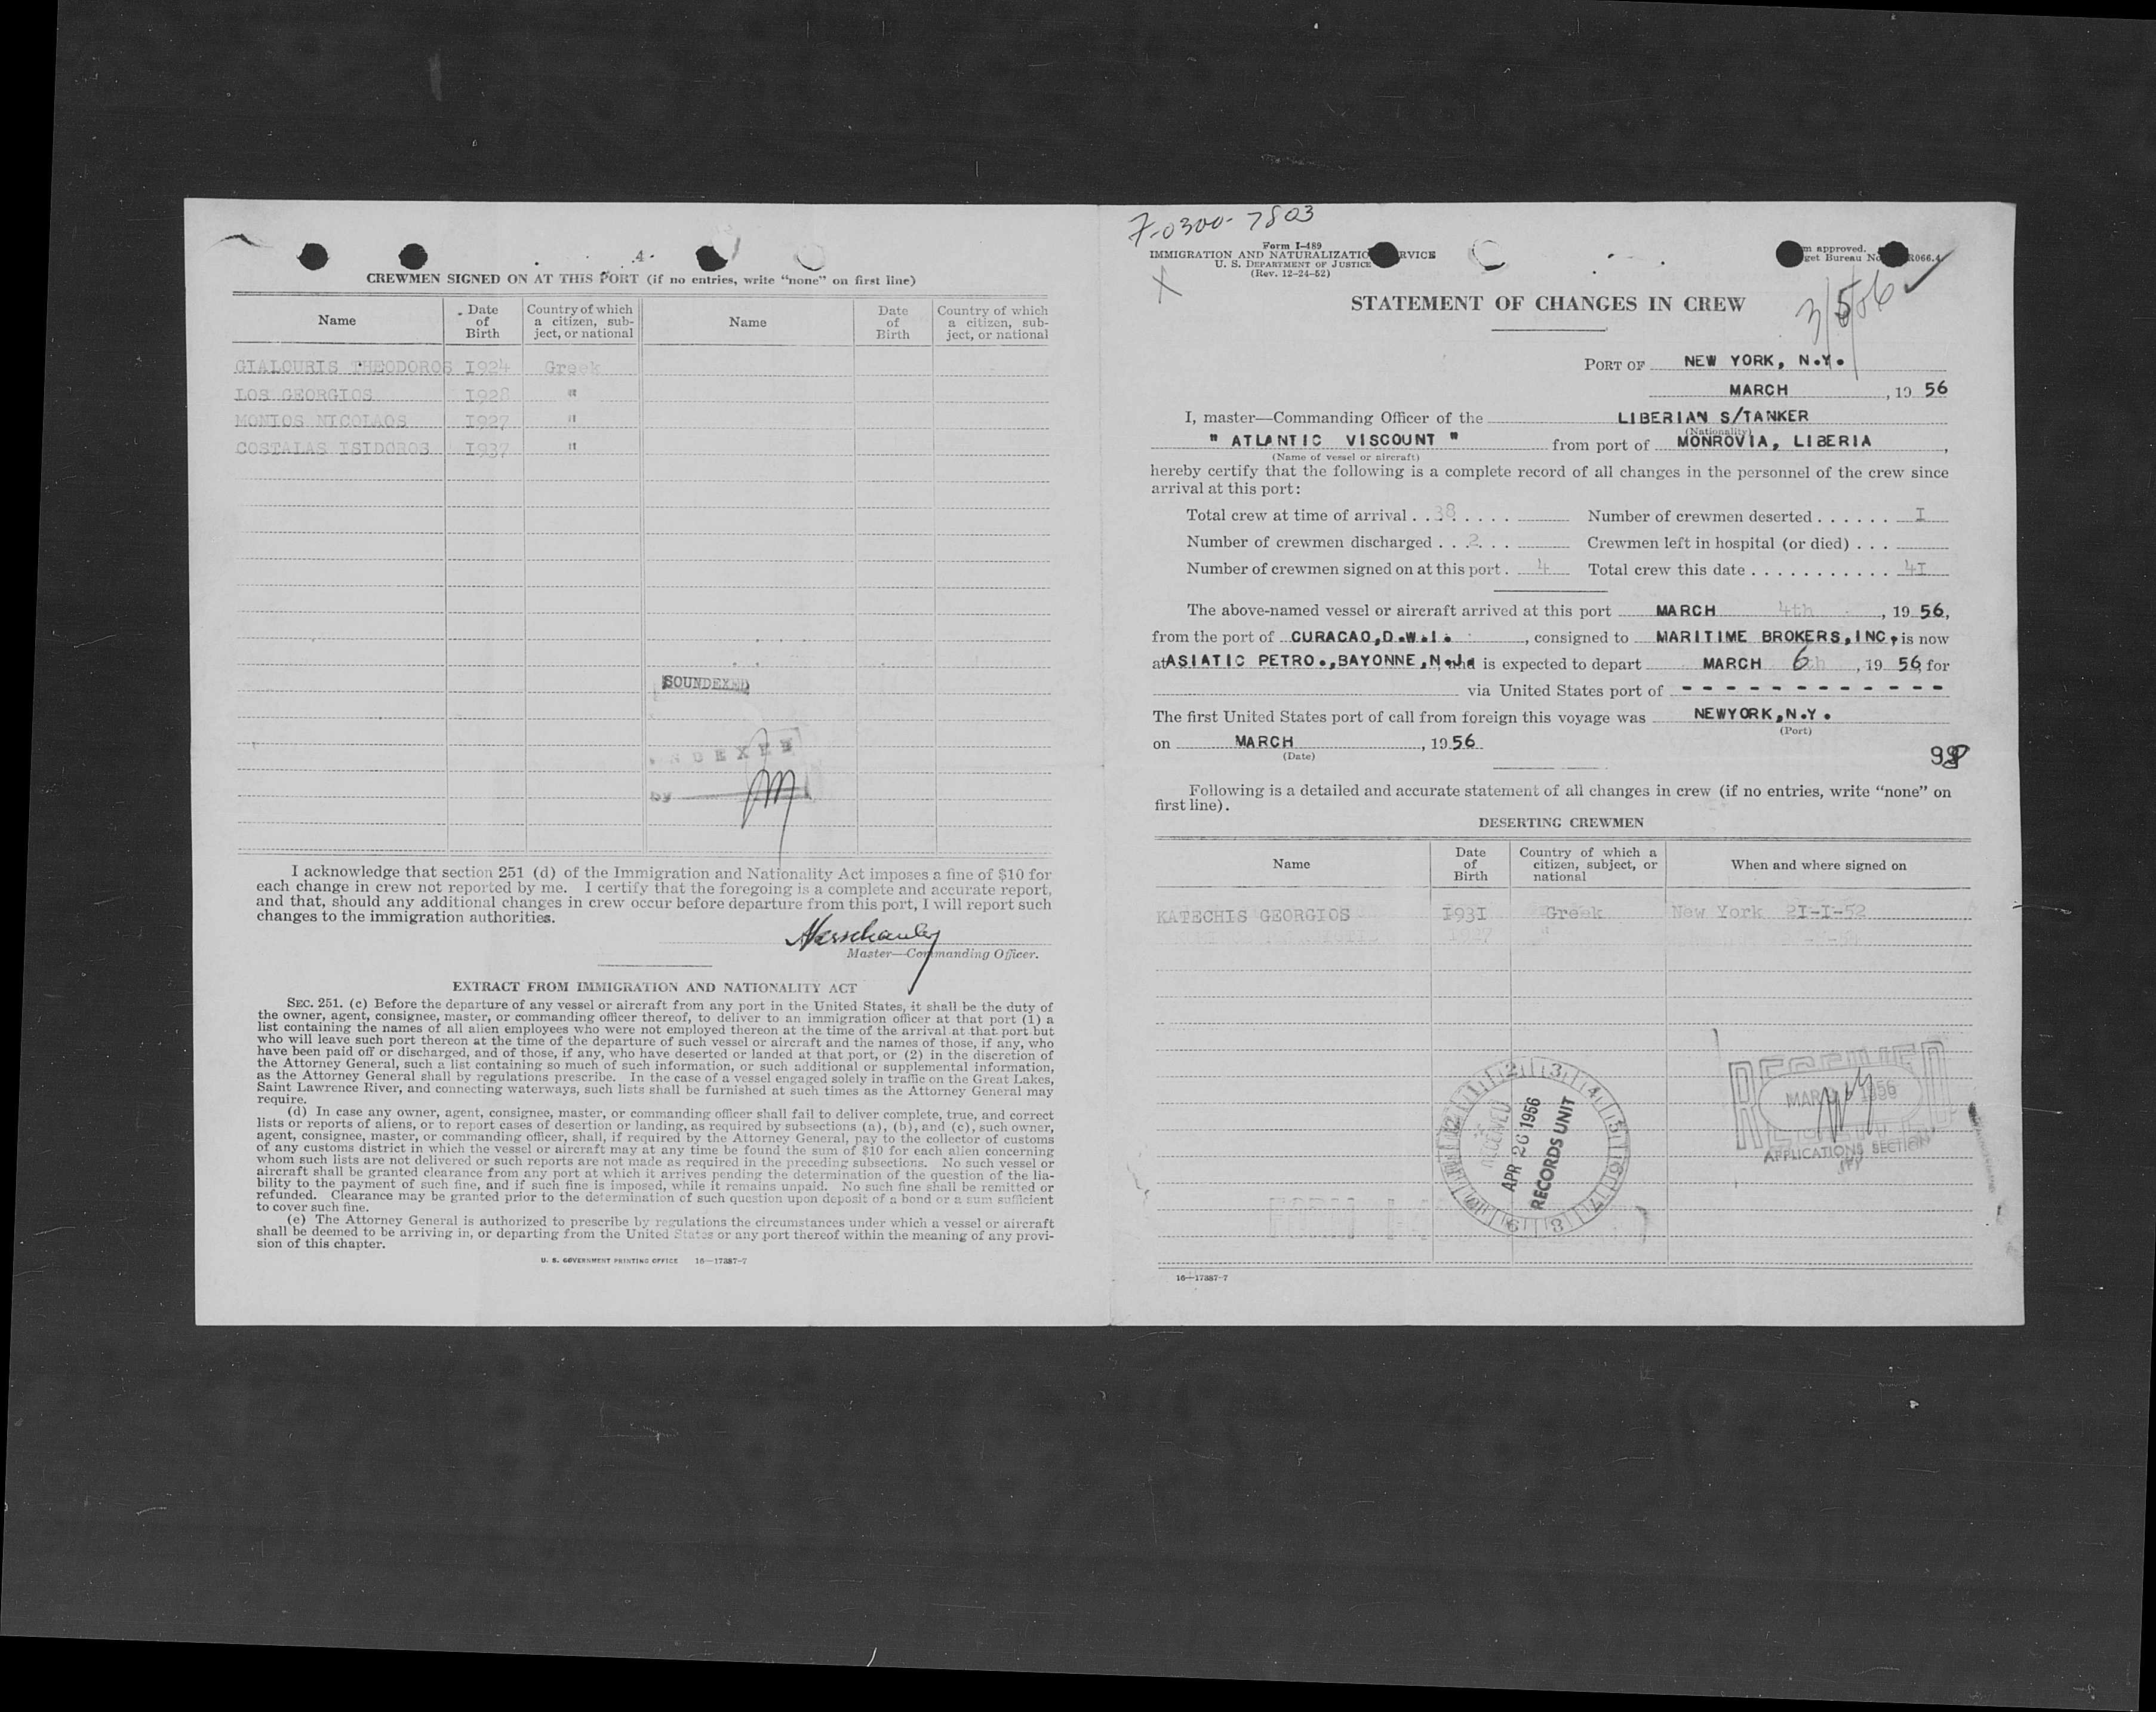 4
CREWMEN SIGNED ON AT THIS PORT (if no entries, write “none” on first line)
Name
Date of Birth
Country of which a citizen, subject, or national
Name
Date of Birth
Country of which a citizen, subject, or national
GIALOURIS THEODOROS 1924 Greek
LOS GEORGIOS 1928 "
MONIOS NICOLAOS 1927 "
COSTALAS ISIDOROS 1937 "
SOUNDEXED
by
I acknowledge that section 251 (d) of the Immigration and Nationality Act imposes a fine of $10 for
each change in crew not reported by me. I certify that the foregoing is a complete and accurate report,
and that, should any additional changes in crew occur before departure from this port, I will report such
changes to the immigration authorities.
Master—Commanding Officer.
EXTRACT FROM IMMIGRATION AND NATIONALITY ACT
SEC. 251. (c) Before the departure of any vessel or aircraft from any port in the United States, it shall be the duty of
the owner, agent, consignee, master, or commanding officer thereof, to deliver to an immigration officer at that port (1) a
list containing the names of all alien employees who were not employed thereon at the time of the arrival at that port but
who will leave such port thereon at the time of the departure of such vessel or aircraft and the names of those, if any, who
have been paid off or discharged, and of those, if any, who have deserted or landed at that port, or (2) in the discretion of
the Attorney General, such a list containing so much of such information, or such additional or supplemental information,
as the Attorney General shall by regulations prescribe. In the case of a vessel engaged solely in traffic on the Great Lakes,
Saint Lawrence River, and connecting waterways, such lists shall be furnished at such times as the Attorney General may
require.
(d) In case any owner, agent, consignee, master, or commanding officer shall fail to deliver complete, true, and correct
lists or reports of aliens, or to report cases of desertion or landing, as required by subsections (a), (b), and (c), such owner,
agent, consignee, master, or commanding officer, shall, if required by the Attorney General, pay to the collector of customs
of any customs district in which the vessel or aircraft may at any time be found the sum of $10 for each alien concerning
whom such lists are not delivered or such reports are not made as required in the preceding subsections. No such vessel or
aircraft shall be granted clearance from any port at which it arrives pending the determination of the question of the lia-
bility to the payment of such fine, and if such fine is imposed, while it remains unpaid. No such fine shall be remitted or
refunded. Clearance may be granted prior to the determination of such question upon deposit of a bond or a sum sufficient
to cover such fine.
(e) The Attorney General is authorized to prescribe by regulations the circumstances under which a vessel or aircraft
shall be deemed to be arriving in, or departing from the United States or any port thereof within the meaning of any provi-
sion of this chapter.
U. S. GOVERNMENT PRINTING OFFICE 16—17387-7
7-0300-7803
Form I-489
IMMIGRATION AND NATURALIZATIO RVICE
U. S. DEPARTMENT OF JUSTICE
(Rev. 12-24-52)
m approved.
get Bureau No. R066.4
3/5/56
STATEMENT OF CHANGES IN CREW
PORT OF NEW YORK, N.Y.
MARCH , 19 56
I, master—Commanding Officer of the LIBERIAN S/TANKER
(Nationality)
" ATLANTIC VISCOUNT " from port of MONROVIA, LIBERIA ,
(Name of vessel or aircraft)
hereby certify that the following is a complete record of all changes in the personnel of the crew since
arrival at this port:
Total crew at time of arrival . . 38 . . . . Number of crewmen deserted . . . . . . I
Number of crewmen discharged . . . 2 . . Crewmen left in hospital (or died) . . .
Number of crewmen signed on at this port . 4 Total crew this date . . . . . . . . . . . 4I
The above-named vessel or aircraft arrived at this port MARCH 4th , 19 56,
from the port of CURACAO,D.W.I. , consigned to MARITIME BROKERS,INC, is now
at ASIATIC PETRO.,BAYONNE,N.J. and is expected to depart MARCH 6th , 19 56, for
via United States port of - - - - - - - - - - - -
The first United States port of call from foreign this voyage was NEWYORK,N.Y.
(Port)
on MARCH , 19 56
(Date)
Following is a detailed and accurate statement of all changes in crew (if no entries, write “none” on
first line).
DESERTING CREWMEN
Name
Date of Birth
Country of which a citizen, subject, or national
When and where signed on
KATECHIS GEORGIOS I93I Greek New York 2I-I-52
RECEIVED
APR 26 1956
RECORDS UNIT
RECEIVED
MAR 1956
APPLICATIONS SECTION
16—17387-7